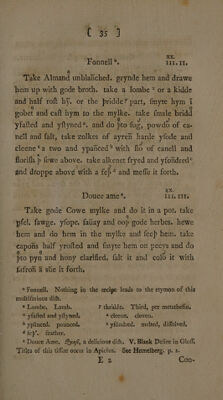 [ 35 ]
Fonnell ᵃ. XX. III. II.
Take Almand unblaiched. grynde hem and drawe
hem up with gode broth. take a lombe ᵇ or a kidde
and half rost hẏ. or the þridde ᶜ part, smyte hym ī
gobet and cast hym to the mylke. take smale bridd
yfasted and ystyned ᵈ. and do þto sug, powdo of ca-
nell and salt, take zolkes of ayren harde ysode and
cleene ᵉ a two and ypaūced ᶠ with flo of canell and
florish þ sewe above. take alkenet fryed and yfondred ᵍ
and droppe above with a feþ ʰ and messe it forth.
Douce ame ⁱ. XX. III. III.
Take gode Cowe mylke and do it in a pot. take
psel. sawge. ysope. saūay and ooþ gode herbes. hewe
hem and do hem in the mylke and seeþ hem. take
capons half yrosted and smyte hem on pecys and do
þto pyn and hony clarified. salt it and colo it with
safron ā sūe it forth.
ᵃ Fonnell. Nothing in the recipe leads to the etymon of this
multifarious dish.
ᵇ Lombe. Lamb. ᶜ thridde. Third, per metathesin.
ᵈ yfasted and ystyned. ᵉ cleene. cloven.
ᶠ ypaunced. pounced. ᵍ yfondred. melted, dissolved.
ʰ feþ. feather.
ⁱ Douce Ame. Quasi, a delicious dish. V. Blank Desire in Gloss.
Titles of this tissue occur in Apicius. See Humelberg. p. 2.
E 2 Coo-